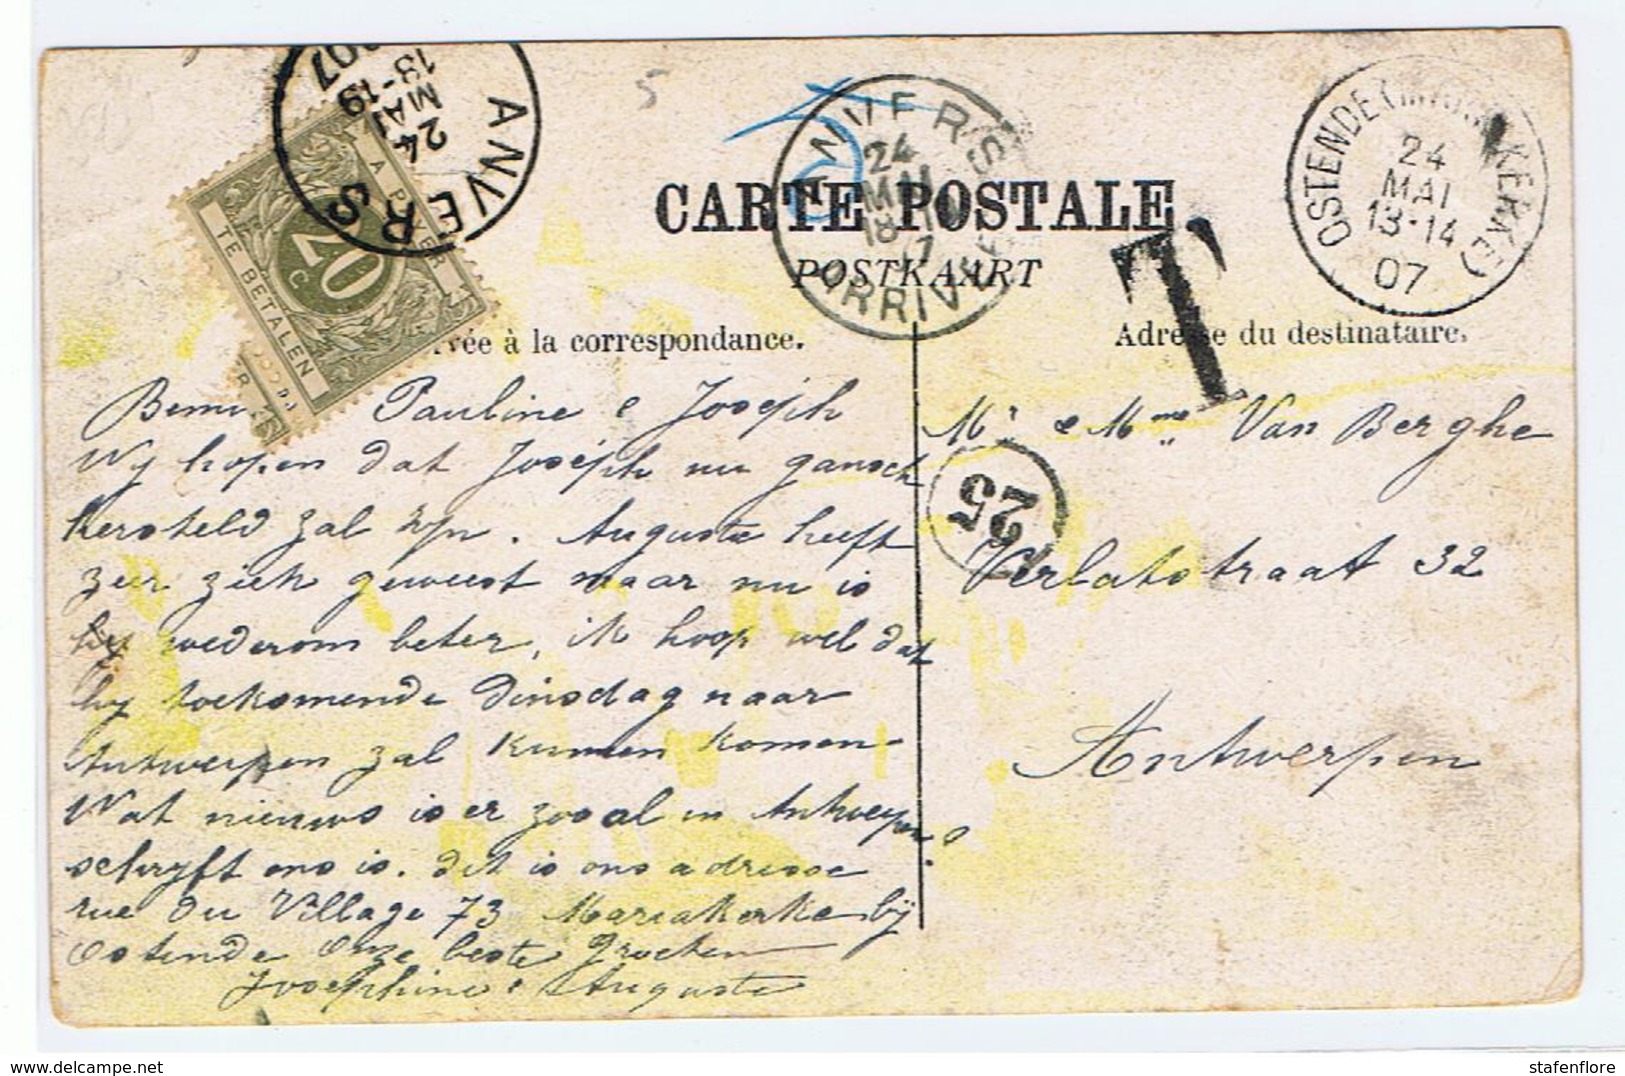 ANVERS
24
MAI
18-19
07
A PAYER
20
C
TE BETALEN
5
ANVERS
24
MAI
18-19
07
ARRIVÉE
OSTENDE (MARIAKERKE)
24
MAI
13-14
07
CARTE POSTALE
POSTKAART
T
rvée à la correspondance.
Adresse du destinataire.
25
Pauline & Joseph
Wij hopen dat Joseph nu gansch
hersteld zal zijn. Auguste heeft
zeer ziek geweest maar nu is
hij wederom beter, ik hoop wel dat
hij toekomende Dinsdag naar
Antwerpen zal kunnen komen
Wat nieuws is er zooal in Antwerpen?
schryft ons is. dit is ons adresse
rue du Village 73 Mariakerke bij
Ostende Onze beste Groeten
Josephine & Auguste
Mr & Mme Van Berghe
Verlatstraat 32
Antwerpen
delcampe.net
stafenflore